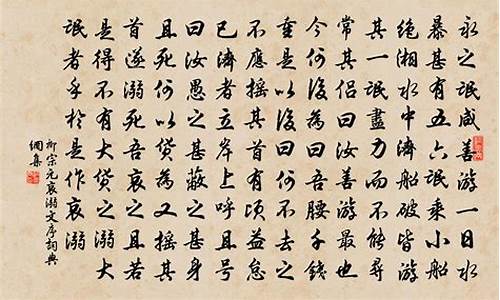 永之氓咸善游一日水
暴甚有五六氓乘小船
絶湘水中濟船破皆游
其一氓盡力而不能尋
常其侣曰汝善游最也
今何後為曰吾腰千錢
重是以後曰何不去之
不應摇其首有頃益怠
已濟者立岸上呼且号
曰汝愚之甚蔽之甚身
且死何以貨為又摇其
首遂溺死吾哀之且若
是得不有大貨之溺大
氓者乎於是作哀溺
柳宗元哀溺文序詞典
網集